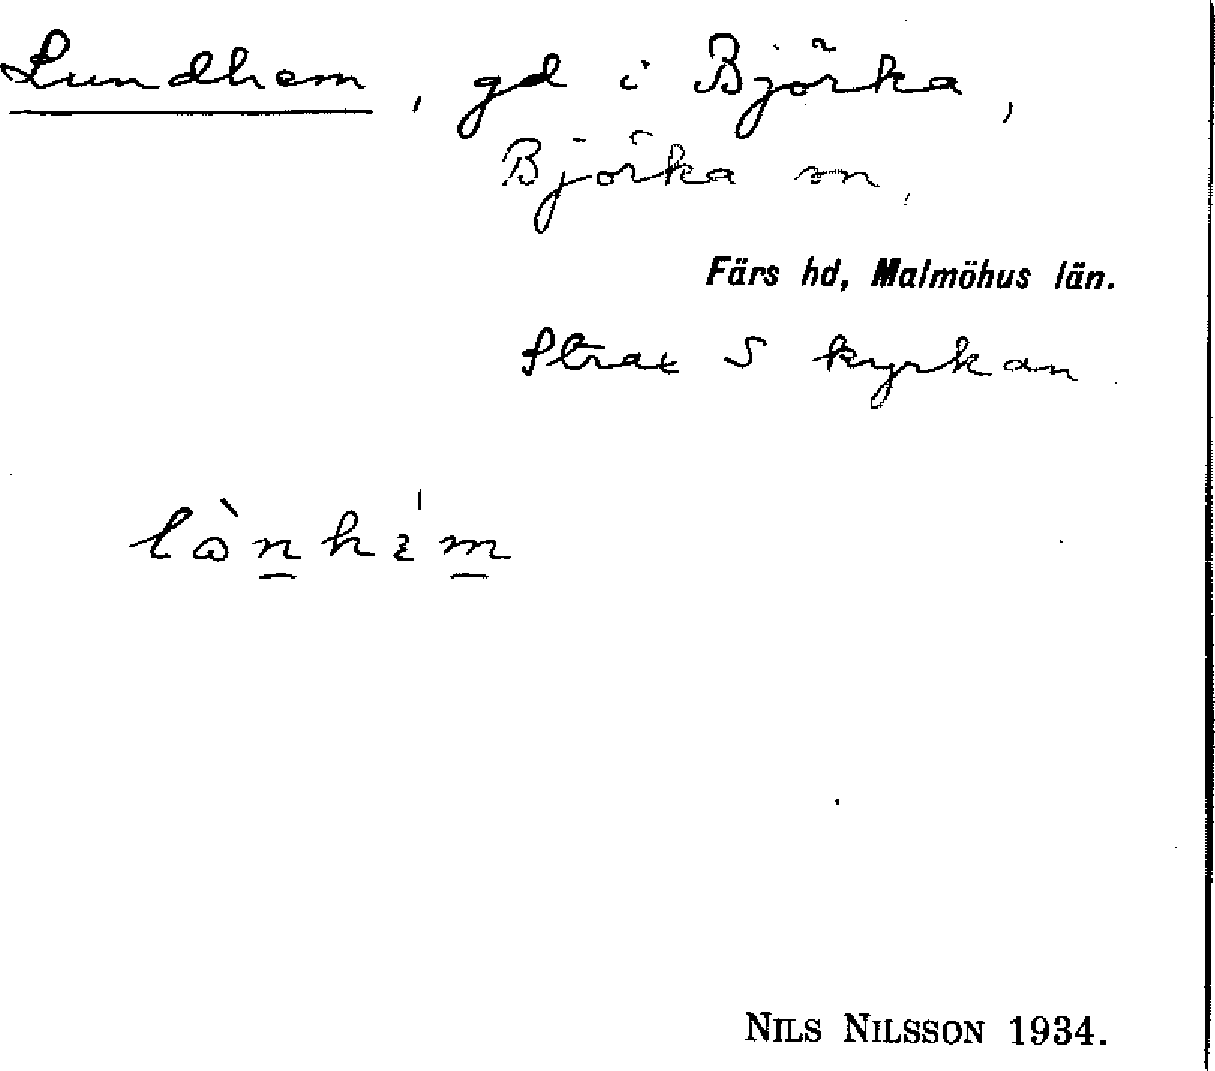 Lundhem, gd i Björka,
Björka sn,
Färs hd, Malmöhus län.
Strax S kyrkan.
NILS NILSSON 1934.